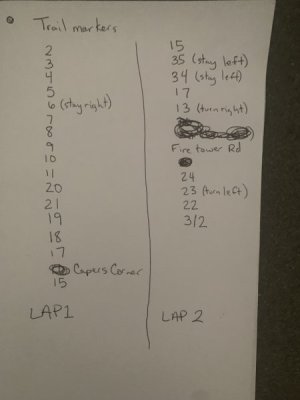 Trail markers
2
3
4
5
6 (stay right)
7
8
9
10
11
20
21
19
18
17
Capers Corner
15
LAP 1
15
35 (stay left)
34 (stay left)
17
13 (turn right)
Fire tower Rd
24
23 (turn left)
22
3/2
LAP 2